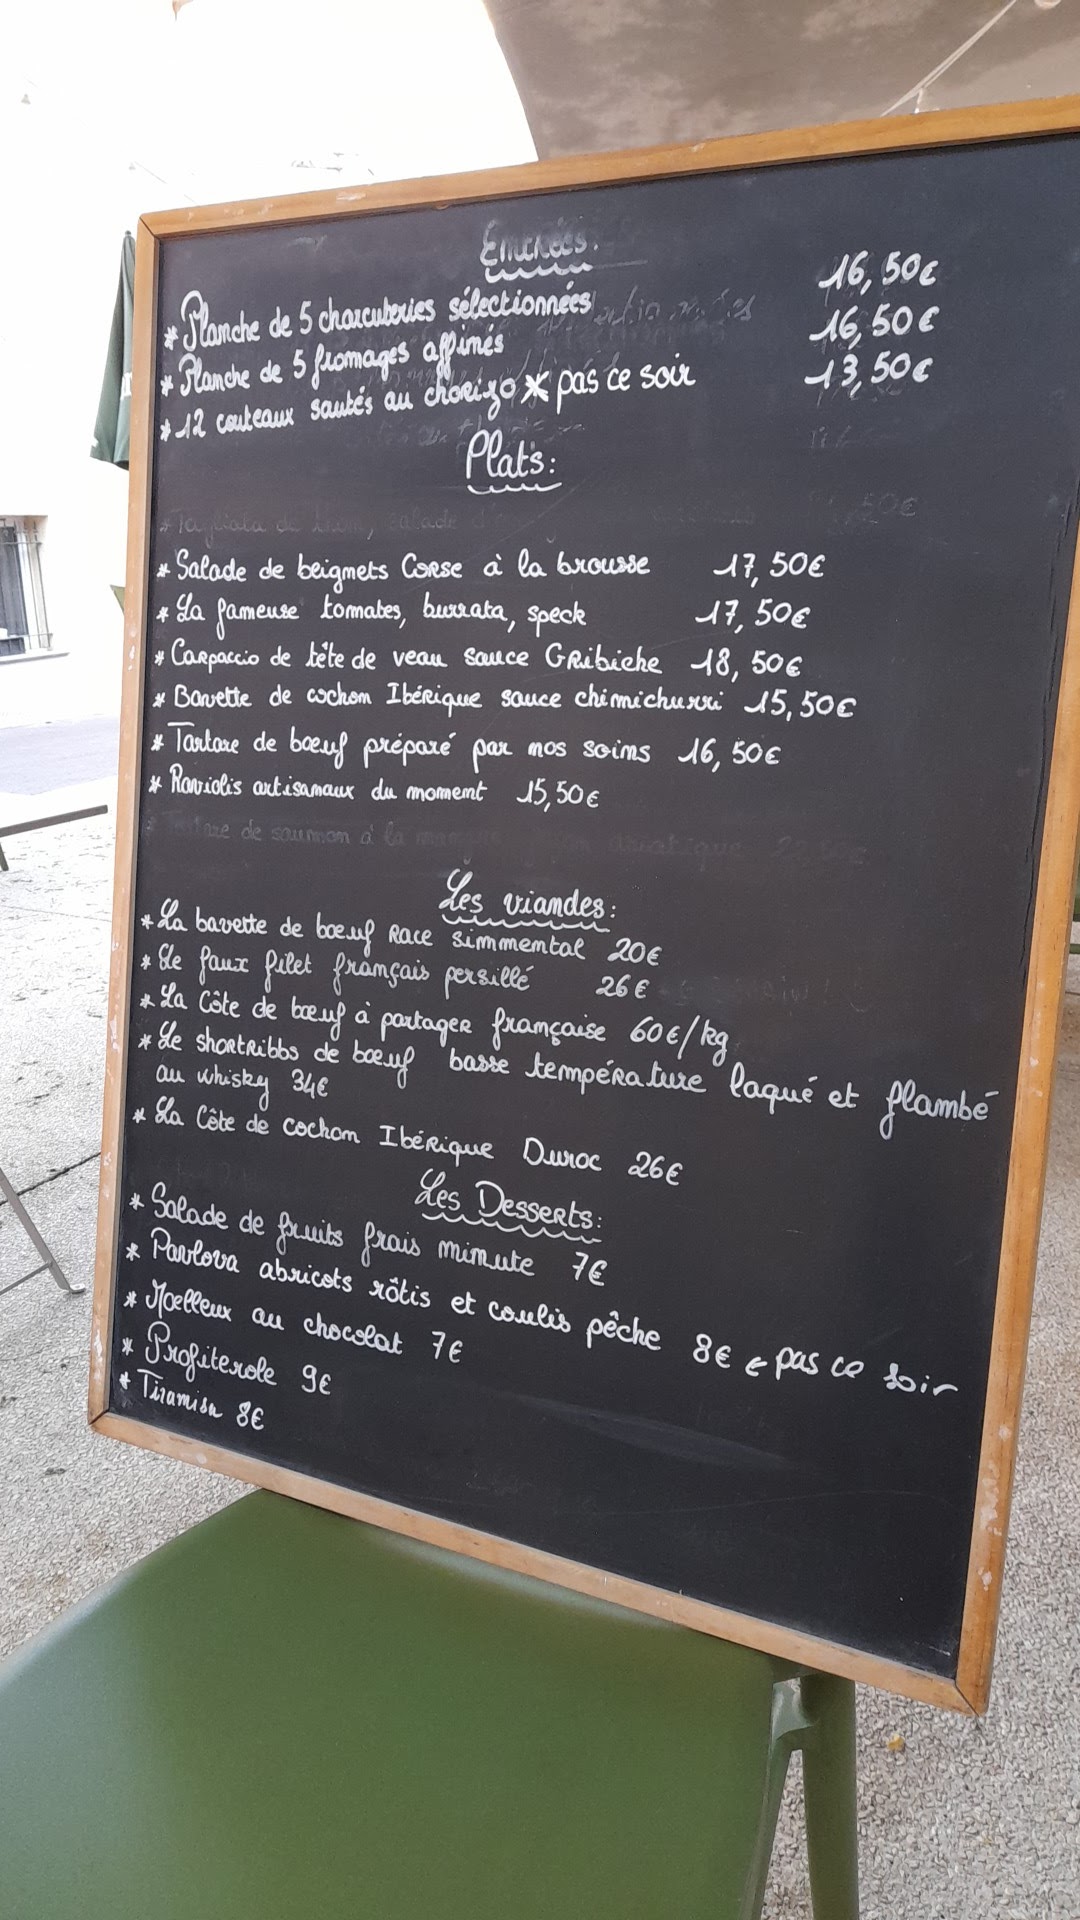 Entrées:
* Planche de 5 charcuteries sélectionnées 16,50€
* Planche de 5 fromages affinés 16,50€
* 12 couteaux sautés au chorizo * pas ce soir 13,50€
Plats:
* Salade de beignets Corse à la brousse 17,50€
* La fameuse tomates, burrata, speck 17,50€
* Carpaccio de tête de veau sauce Gribiche 18,50€
* Bavette de cochon Ibérique sauce chimichurri 15,50€
* Tartare de bœuf préparé par nos soins 16,50€
* Raviolis artisanaux du moment 15,50€
* Tartare de saumon à la
Les viandes:
* La bavette de bœuf Race simmental 20€
* Le faux filet français persillé 26€
* La Côte de bœuf à partager française 60€/kg
* Le shortribbs de bœuf basse température laqué et flambé
au whisky 34€
* La Côte de cochon Ibérique Duroc 26€
Les Desserts:
* Salade de fruits frais minute 7€
* Pavlova abricots rôtis et coulis pêche 8€ ← pas ce soir
* Moelleux au chocolat 7€
* Profiterole 9€
* Tiramisu 8€